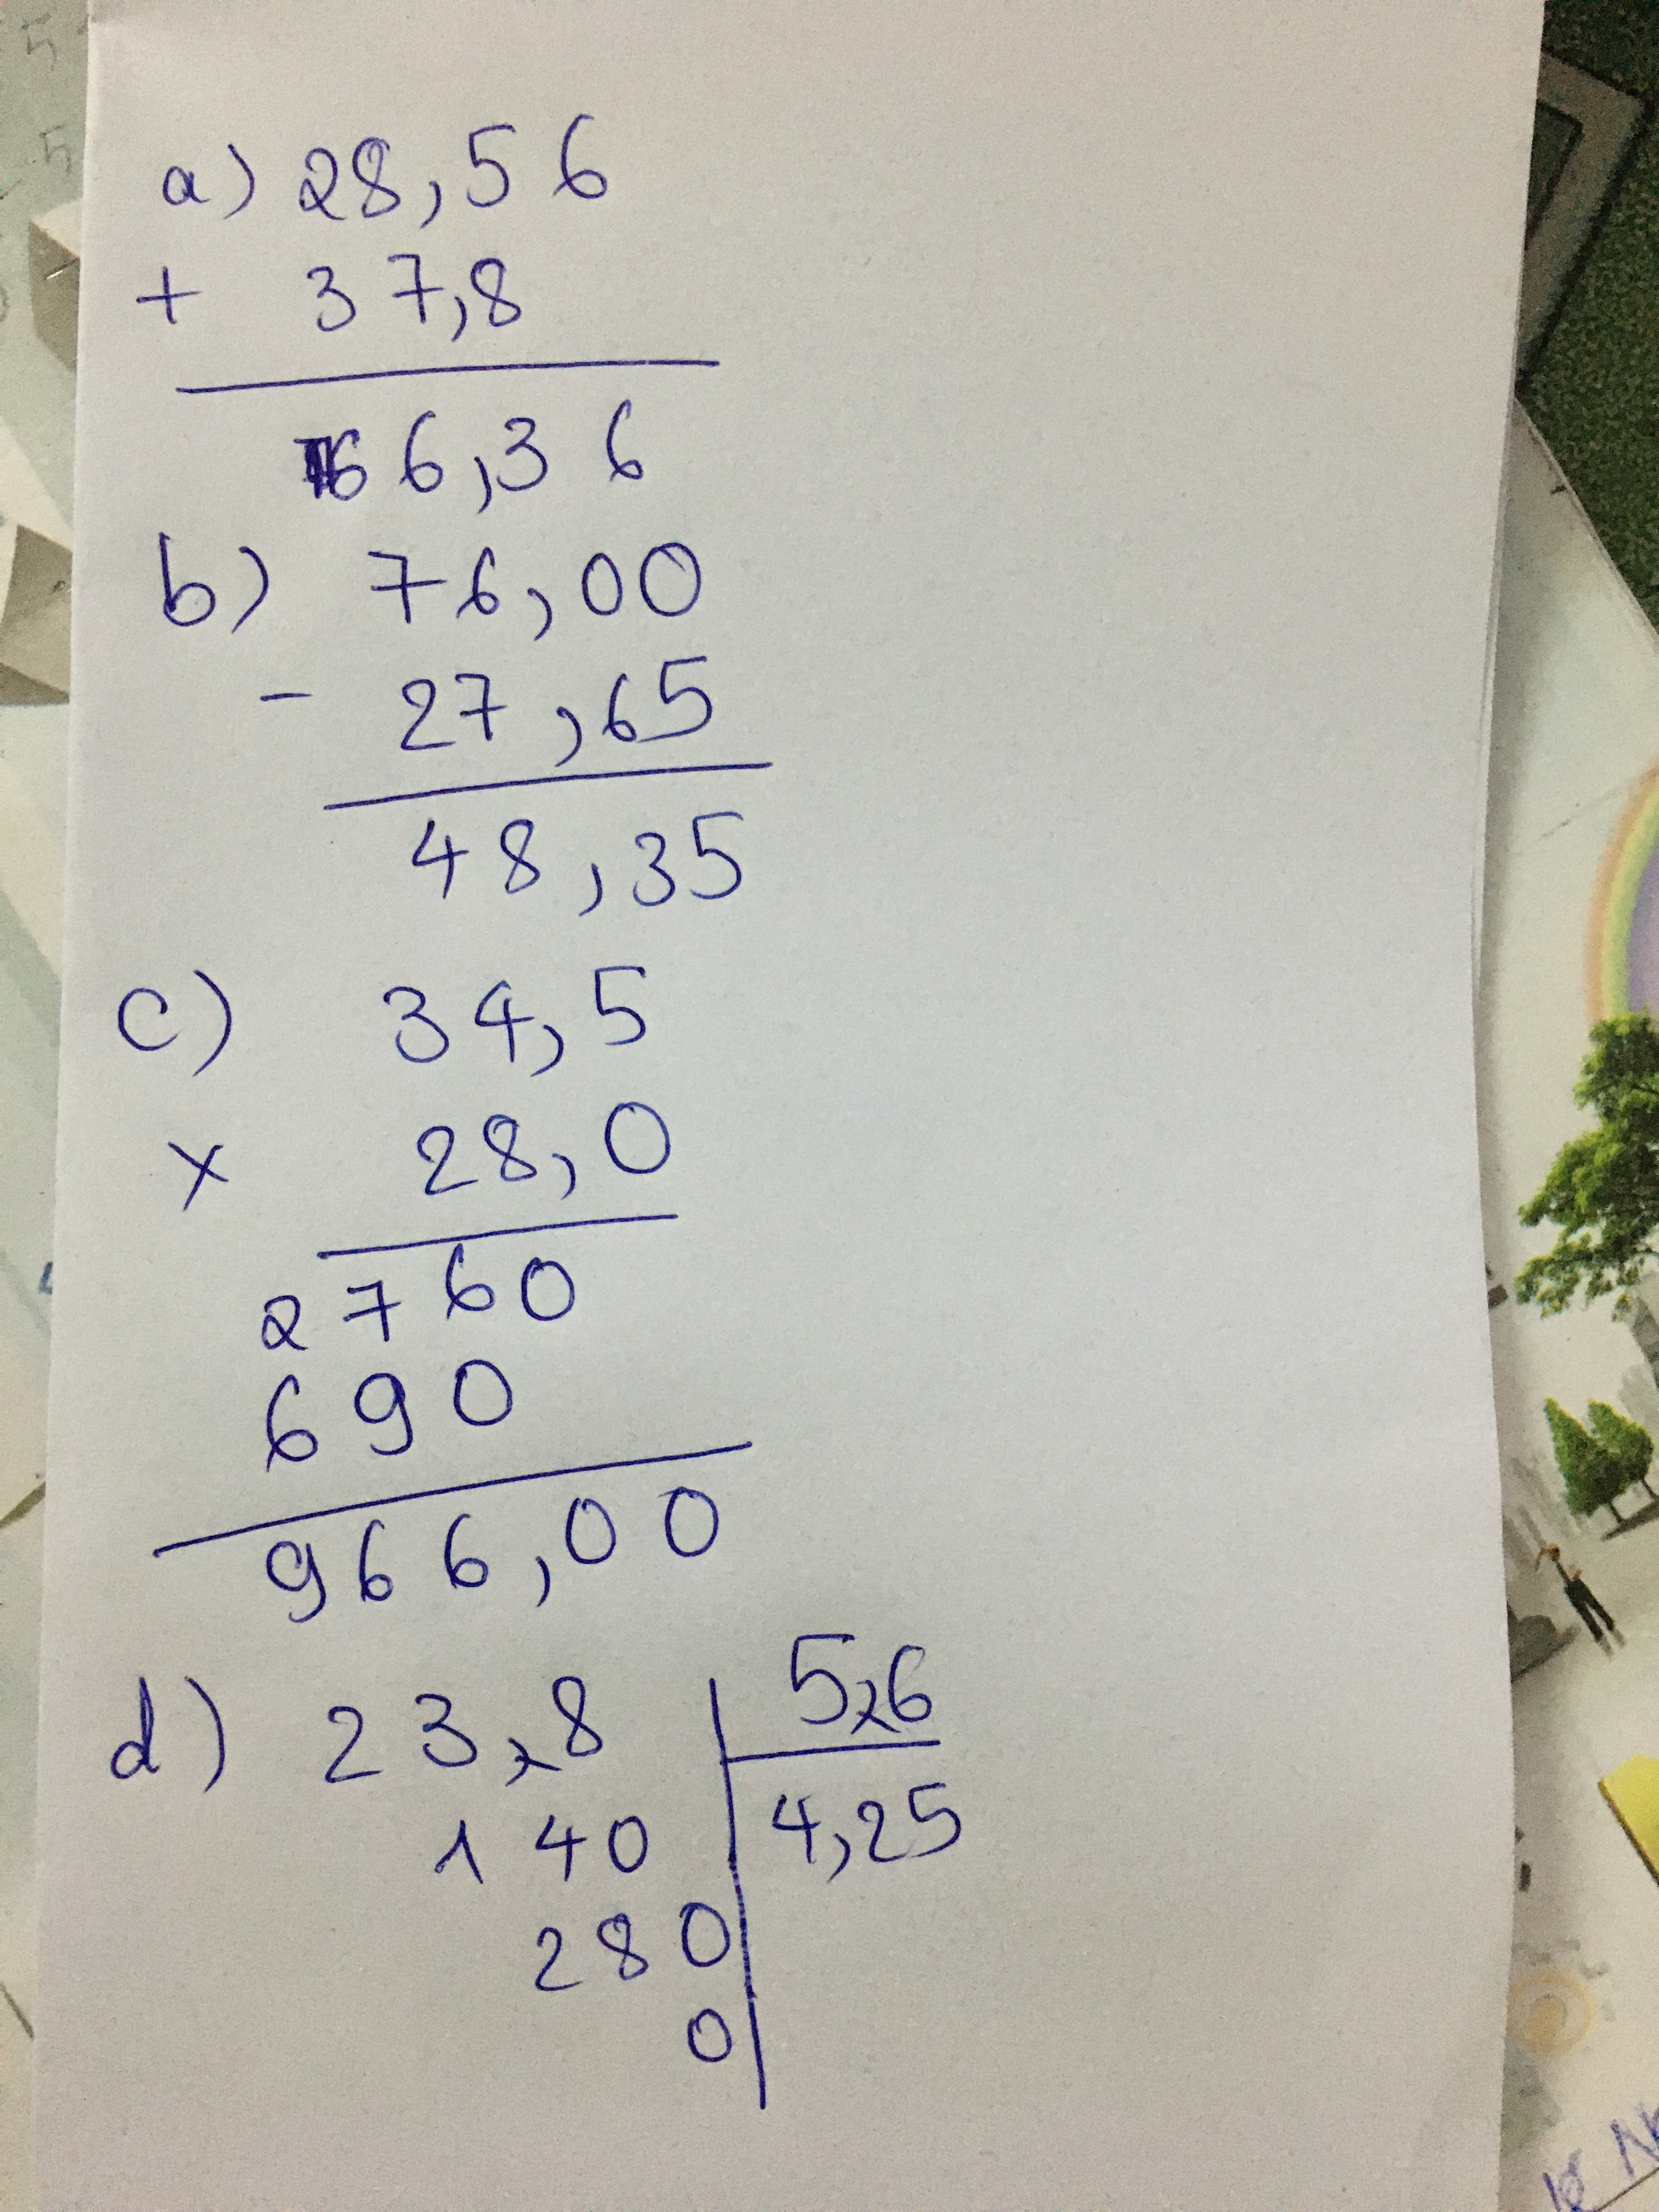 a) 28,56
+ 37,8
66,36
b) 76,00
- 27,65
48,35
c) 34,5
x 28,0
2760
690
966,00
d) 23,8 5,6
140 4,25
280
0